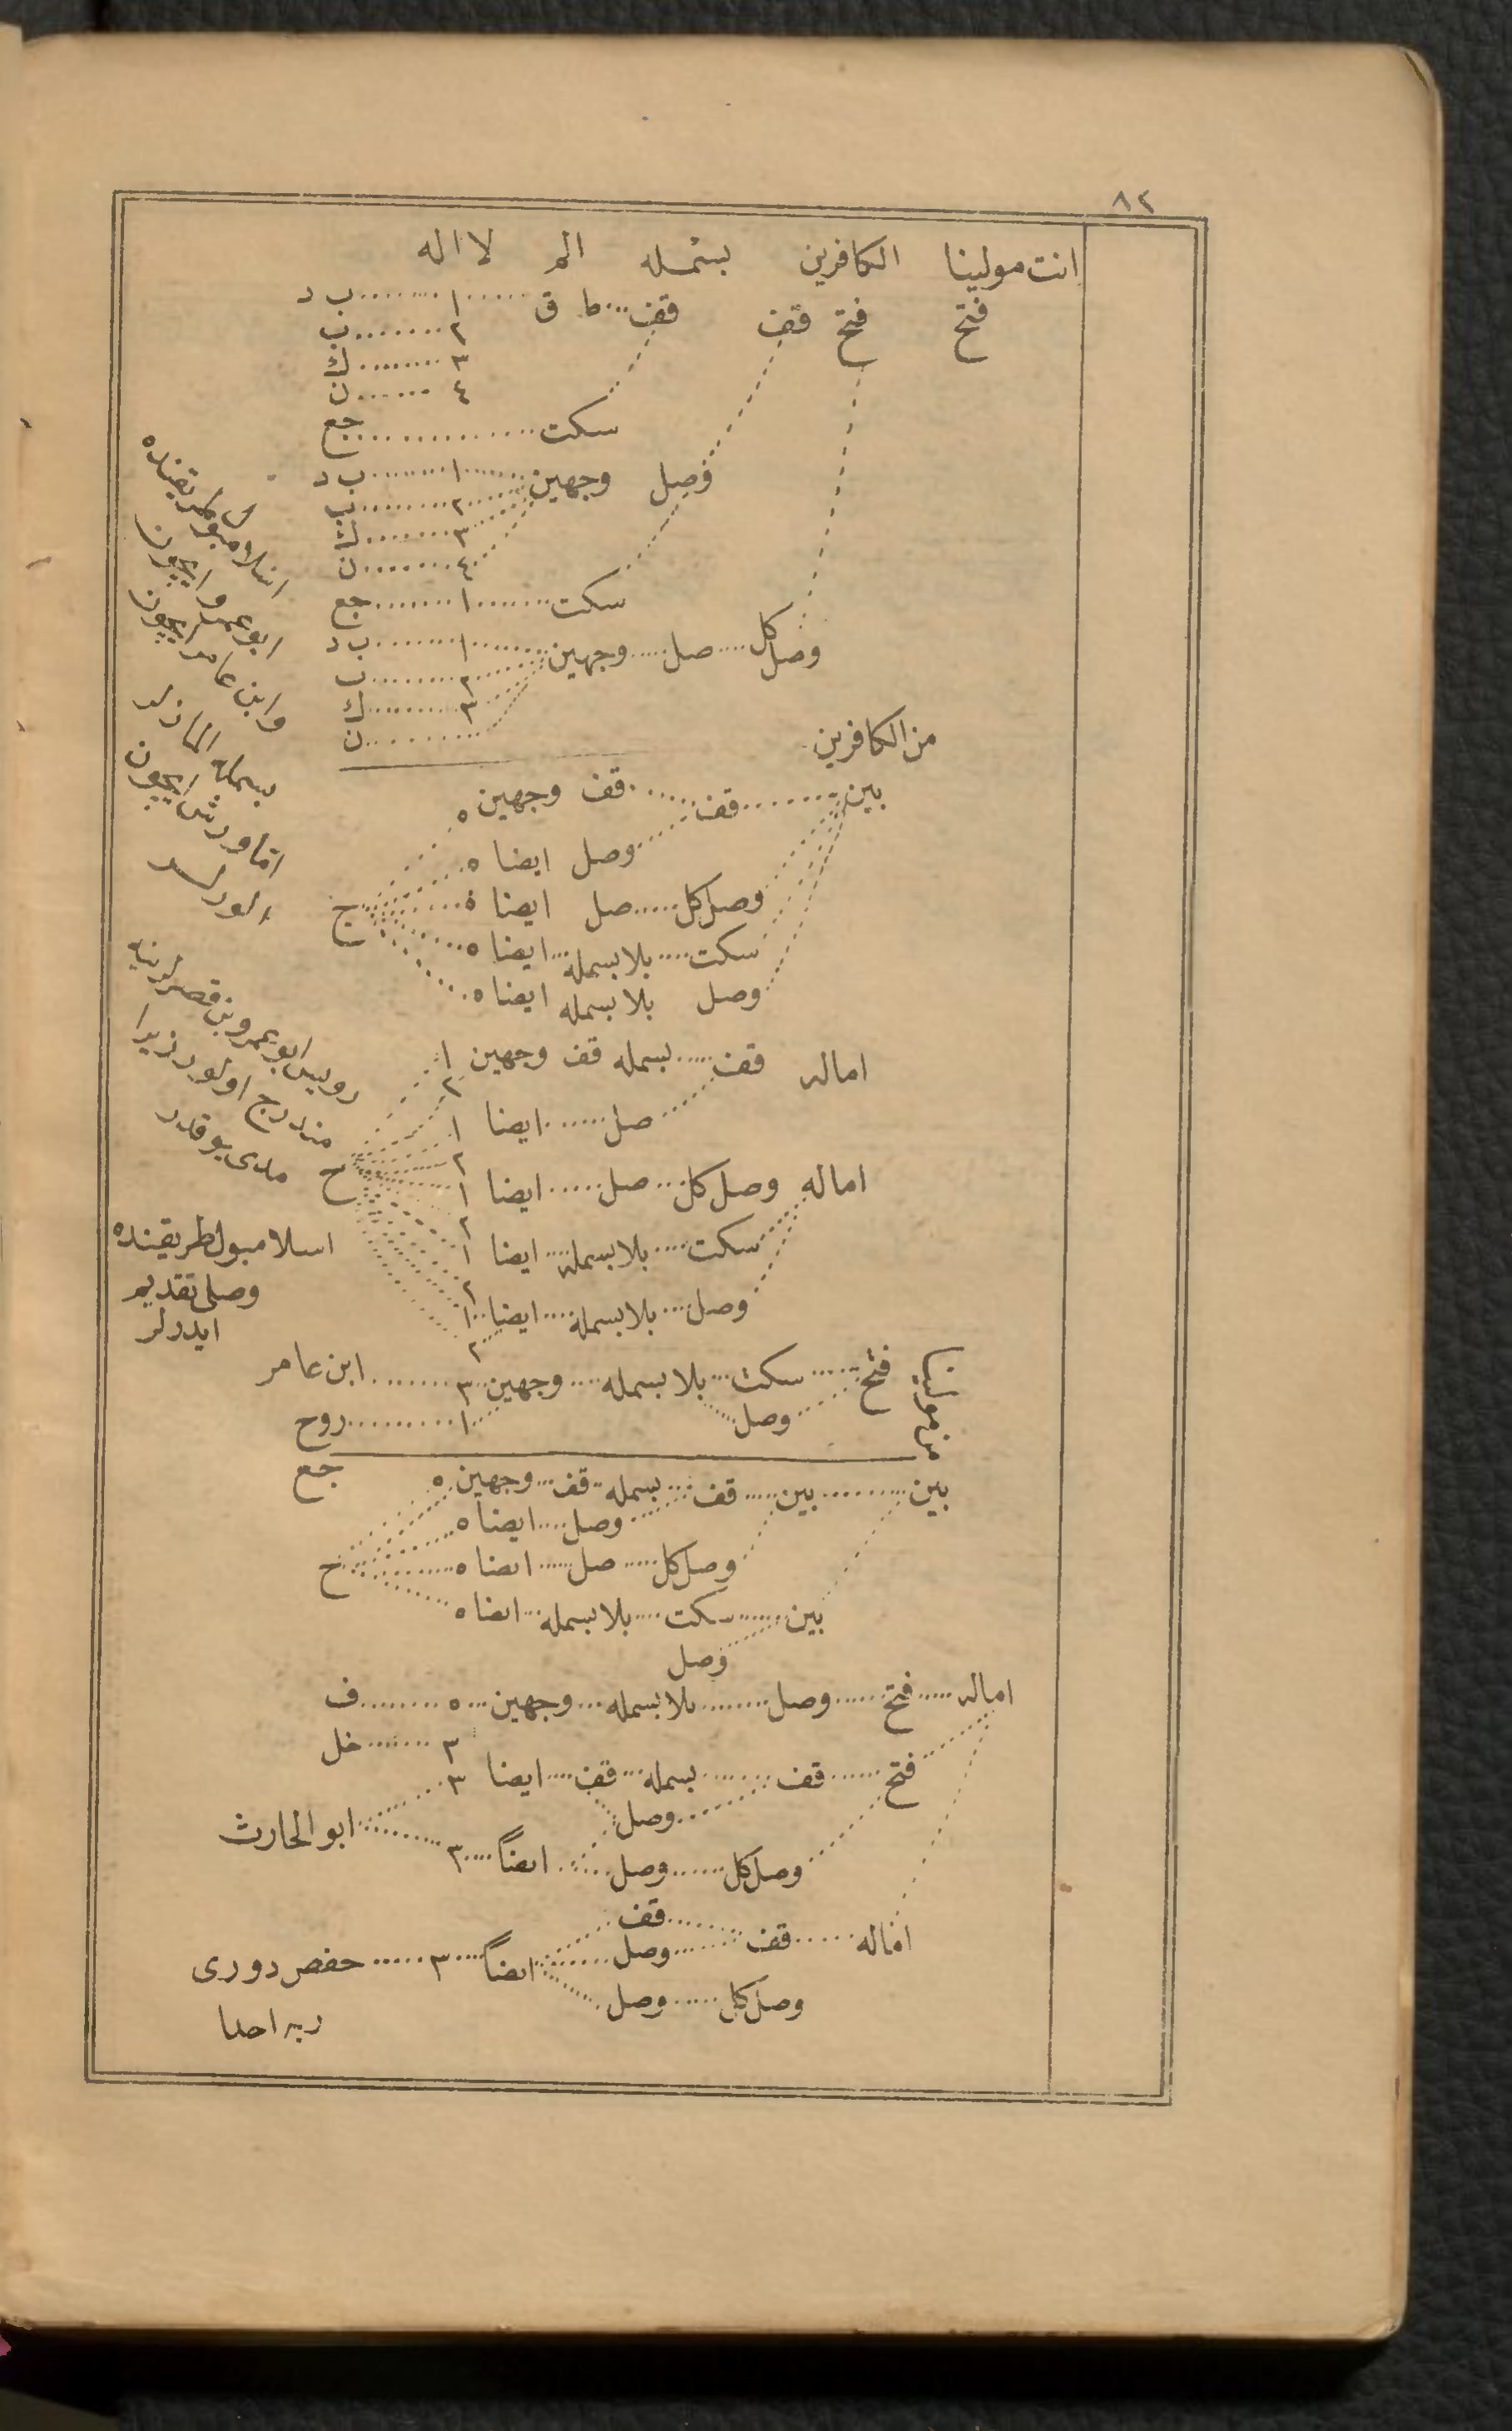 ٨٢
انت مولينا الكافرين بسمله الم لا اله
فتح فتح قف قف ط ق ١ ب د
٢ ب
٣ ك
٤ ن
سكت جع
وصل وجهين ١ ب د
٢ ب
٣ ك
٤ ن
سكت ١ جع
وصل كل صل وجهين ١ ب د
٢ ب
٣ ك
ن
اسلامبول طريقنده
ابو عمرو ايچون
وابن عامر ايچون
بسمله
اما ورش ايچون
من الكافرين
بين قف قف وجهين ٥
وصل ايضا ٥
وصل كل صل ايضا ٥ ج
سكت بلا بسمله ايضا ٥
وصل بلا بسمله ايضا ٥
رويس ابو عمرونك قصرلرينه
مندرج اولور زيرا
مدى يوقدر
اماله قف بسمله قف وجهين ١
٢
صل ايضا ١
٢
اماله وصل كل صل ايضا ١ ح
٢
سكت بلا بسمله ايضا ١
٢
وصل بلا بسمله ايضا ١
٢
اسلامبول طريقنده
وصلى تقديم
ايدرلر
من مولينا
فتح سكت بلا بسمله وجهين ٣ ابن عامر
وصل ١ روح
جع
بين بين قف بسمله قف وجهين ٥
وصل ايضا ٥
وصل كل صل ايضا ٥ ح
بين سكت بلا بسمله ايضا ٥
وصل
اماله فتح وصل بلا بسمله وجهين ٥ ف
٣ خل
فتح قف بسمله قف ايضا ٣
وصل ابو الحارث
وصل كل وصل ايضاً ٣
قف
اماله قف وصل ايضاً ٣ حفص دورى
وصل كل وصل